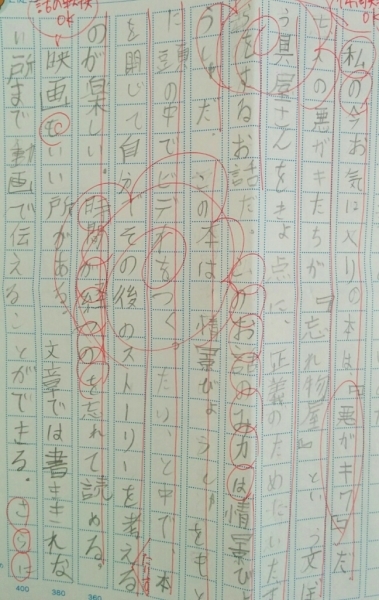 私の今お気に入りの本は、「悪ガキ7」だ。
の悪ガキたちが、「忘れ物屋」という文ぼ
う具屋さんをきょ点に、正義のためにいた
らをするお話だ。このお話のみ力は情景びょ
うしゃだ。この本は、情景びょうしゃをもと
に頭の中でビデオをつくったり、と中で、本
を閉じて自分でその後のストーリーを考える
のが楽しい。時間が経つのを忘れて読める。
映画もいい所がある。文章では書ききれな
い所まで動画で伝えることができる。さらに
OK
OK
400
380
360